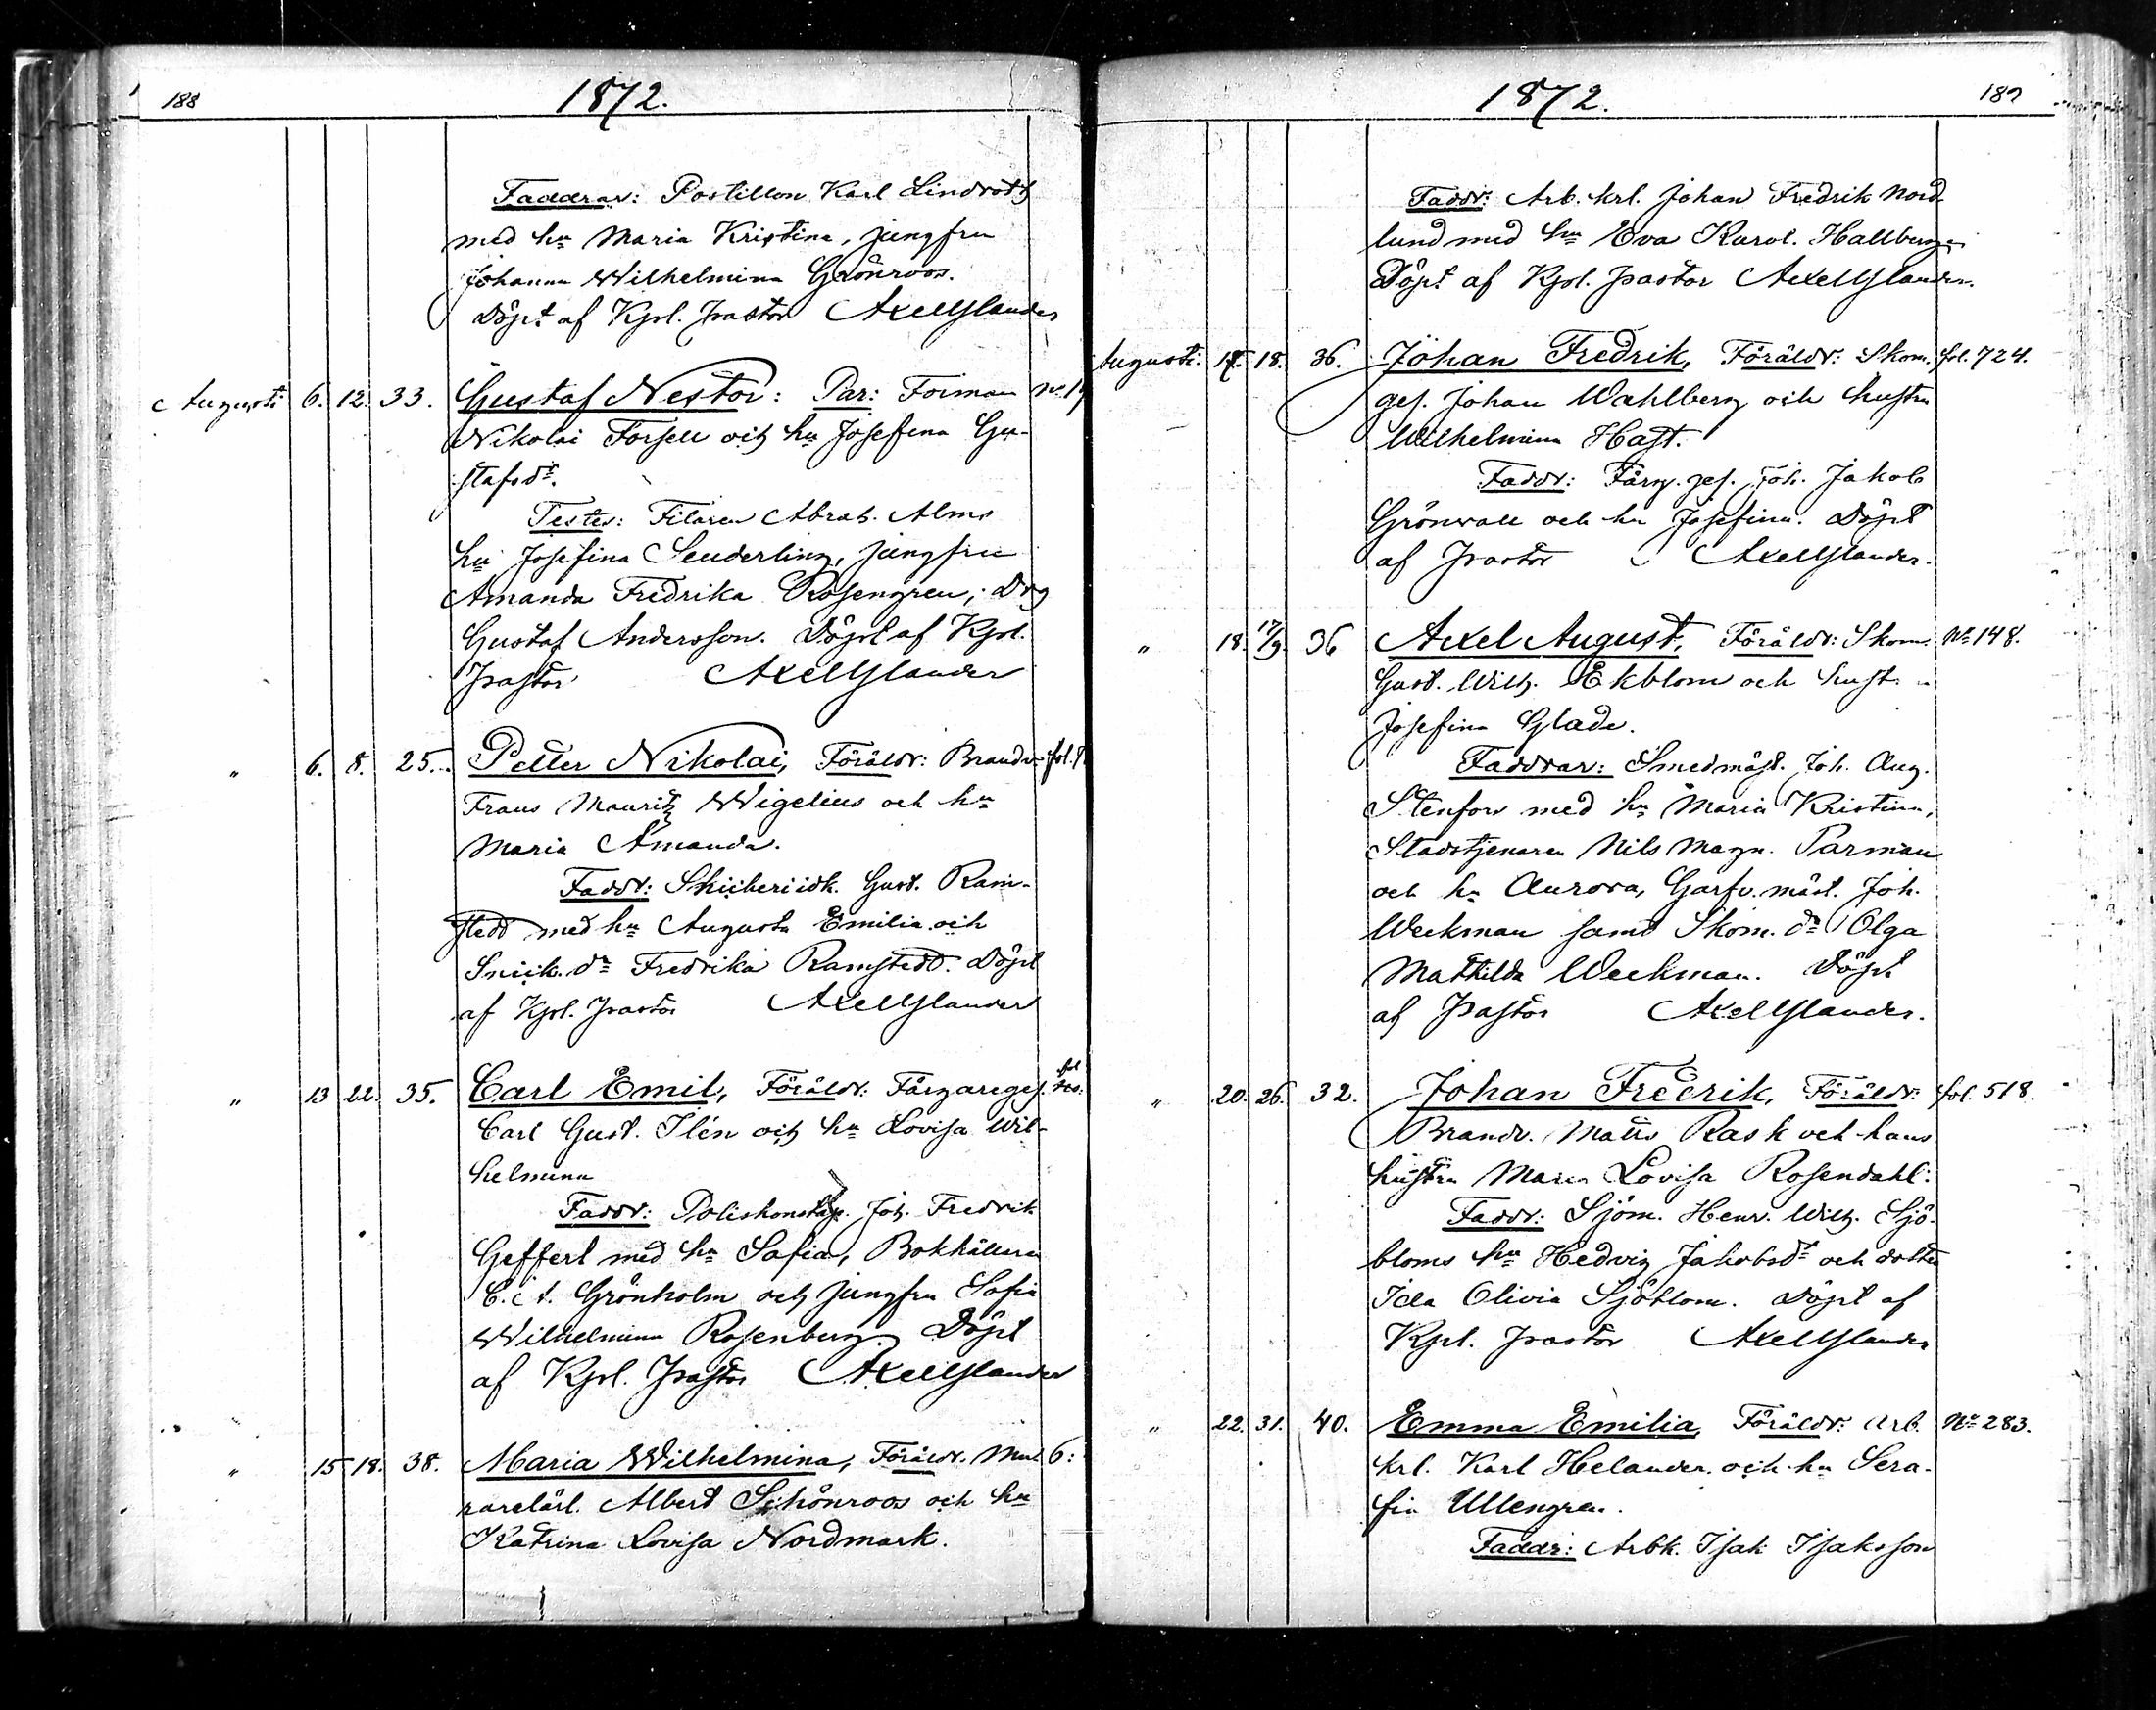 188
1872.
Faddrar: Postillon Karl Lindroth
med hu Maria Kristina, jungfru
Johanna Wilhelmina Grönroos.
Döpt af Kpl. pastor Axel Glander
Augusti 6. 12. 33. Gustaf Nestor: Par: Forman
Nikolai Forsell och hu Josefina Gu-
stafsdr.
Testes: Filaren Abrah. Alms
hu Josefina Senderling, jungfru
Amanda Fredrika Rosengren, Drg
Gustaf Andersson. Döpt af Kpl.
pastor Axel Glander
" 6. 8. 25. Petter Nikolai, Föräldr: Brandv.
Frans Mauritz Wigelius och hu
Maria Amanda.
Faddr: Gust. Ram-
stedt med hu Augusta Emilia och
Snick. dr Fredrika Ramstedt. Döpt
af Kpl. pastor Axel Glander
" 13 22. 35. Carl Emil, Föräldr: Färgareges.
Carl Gust. Ilén och hu Lovisa Wil-
helmina
Faddr: Poliskonstap. Joh. Fredrik
Geffert med hu Sofia, Bokhållaren
C. A. Grönholm och jungfru Sofia
Wilhelmina Rosenberg. Döpt
af Kpl. pastor Axel Glander
" 15 18. 38. Maria Wilhelmina, Föräldr. Mu- 6:
rarelärl. Albert Schönroos och hu
Katrina Lovisa Nordmark.
1872.
189
Faddr: Arb. krl. Johan Fredrik Nord-
lund med hu Eva Karol. Hallberg.
Döpt af Kpl. pastor Axel Glander.
Augusti. 17. 18. 36. Johan Fredrik, Föräldr: Skom. fol. 724.
ges. Johan Wahlberg och hustru
Wilhelmina Hast.
Faddr: Färg. ges. Joh. Jakob
Grönvall och hu Josefina. Döpt
af pastor Axel Glander.
" 18. 17/9. 36 Axel August, Föräldr: Skom. No 148.
Gust. Wilh. Ekblom och hust.
Josefina Glade.
Faddrar: Smedmäst. Joh. Aug.
Stenfors med hu Maria Kristina,
Stadstjenaren Nils Magn. Parman
och hu Aurora, Garfv. mäst. Joh.
Weckman samt Skom. dr Olga
Mathilda Weckman. Döpt
af pastor Axel Glander.
" 20. 26. 32. Johan Fredrik, Föräldr: fol. 518.
Brandv. Matts Rask och hans
hustru Maria Lovisa Rosendahl:
Faddr: Sjöm. Henr. Wilh. Sjö-
bloms hu Hedvig Jakobsdr och dotter
Ida Olivia Sjöblom. Döpt af
Kpl. pastor Axel Glander
" 22. 31. 40. Emma Emilia, Föräldr: Arb. No 283.
krl. Karl Helander och hu Sera-
fia Ullengren.
Faddr: Arbk. Isak Isaksson